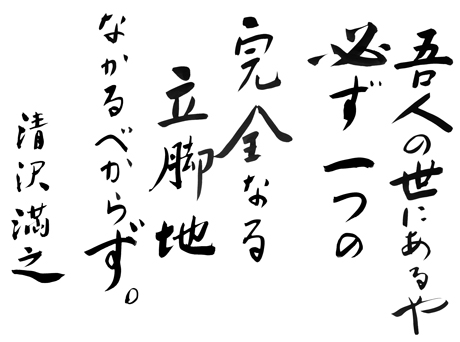 吾人の世にあるや
必ず一つの
完全なる
立脚地
なかるべからず。
清沢満之